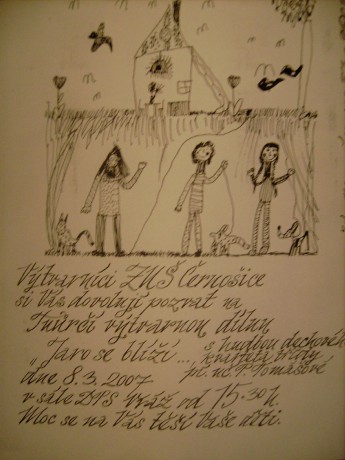 Výtvarníci ZUŠ Černošice
si Vás dovolují pozvat na
Tvůrčí výtvarnou dílnu
„Jaro se blíží...
s hudbou dechového
kvarteta třídy
p. uč. P. Tomášové
dne 8.3.2007
v sále DPS Vráž od 15.30 h.
Moc se na Vás těší Vaše děti.